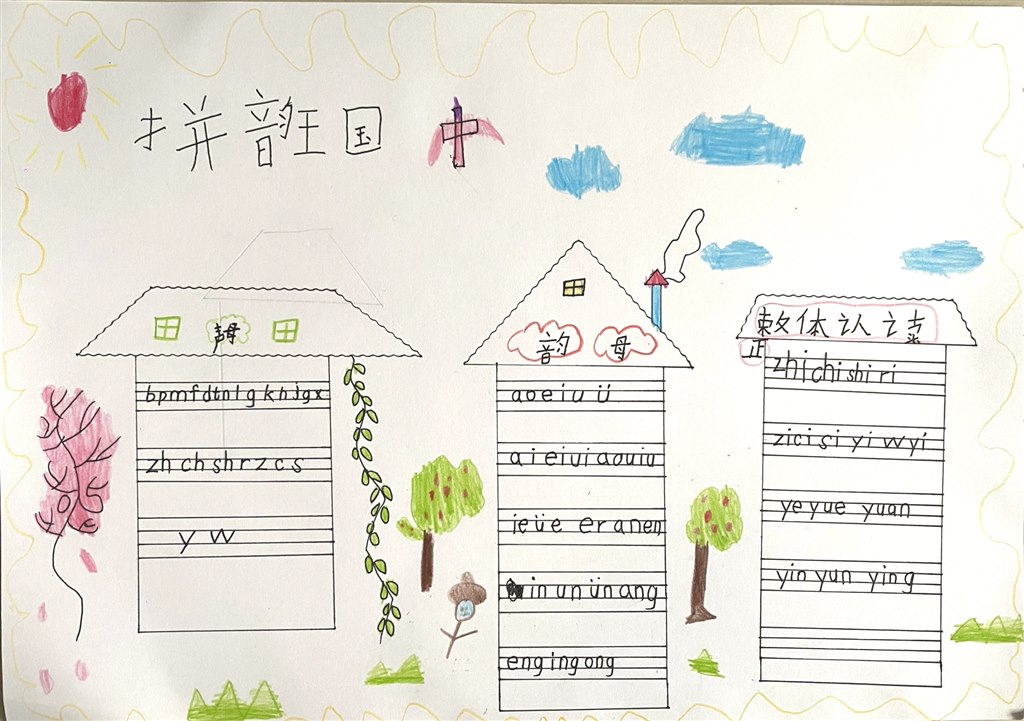 拼韵王国 中
声母
bpmfdtnlgkhjqx
zh ch sh r z c s
y w
韵 母
a o e i u ü
ai ei ui ao ou iu
ie üe er an en
in un ün ang
eng ing ong
整体认读
zhi chi shi ri
zi ci si yi w yi
ye yue yuan
yin yun ying